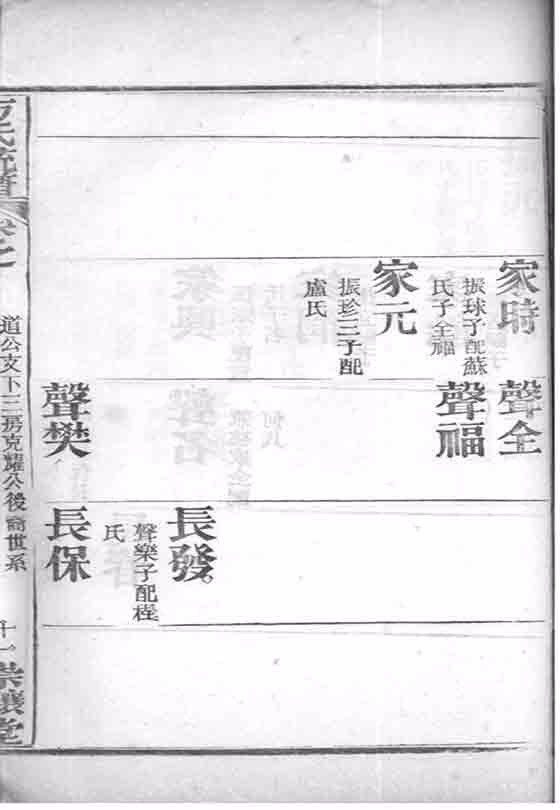 家時
振球子配蘇
氏子全福
家元
振珍三子配
盧氏
聲全
聲福
聲樊
長發
聲樂子配桎
氏
長保
方氏統譜
卷之
道公支下三房克耀公後裔世系
十一
崇讓堂